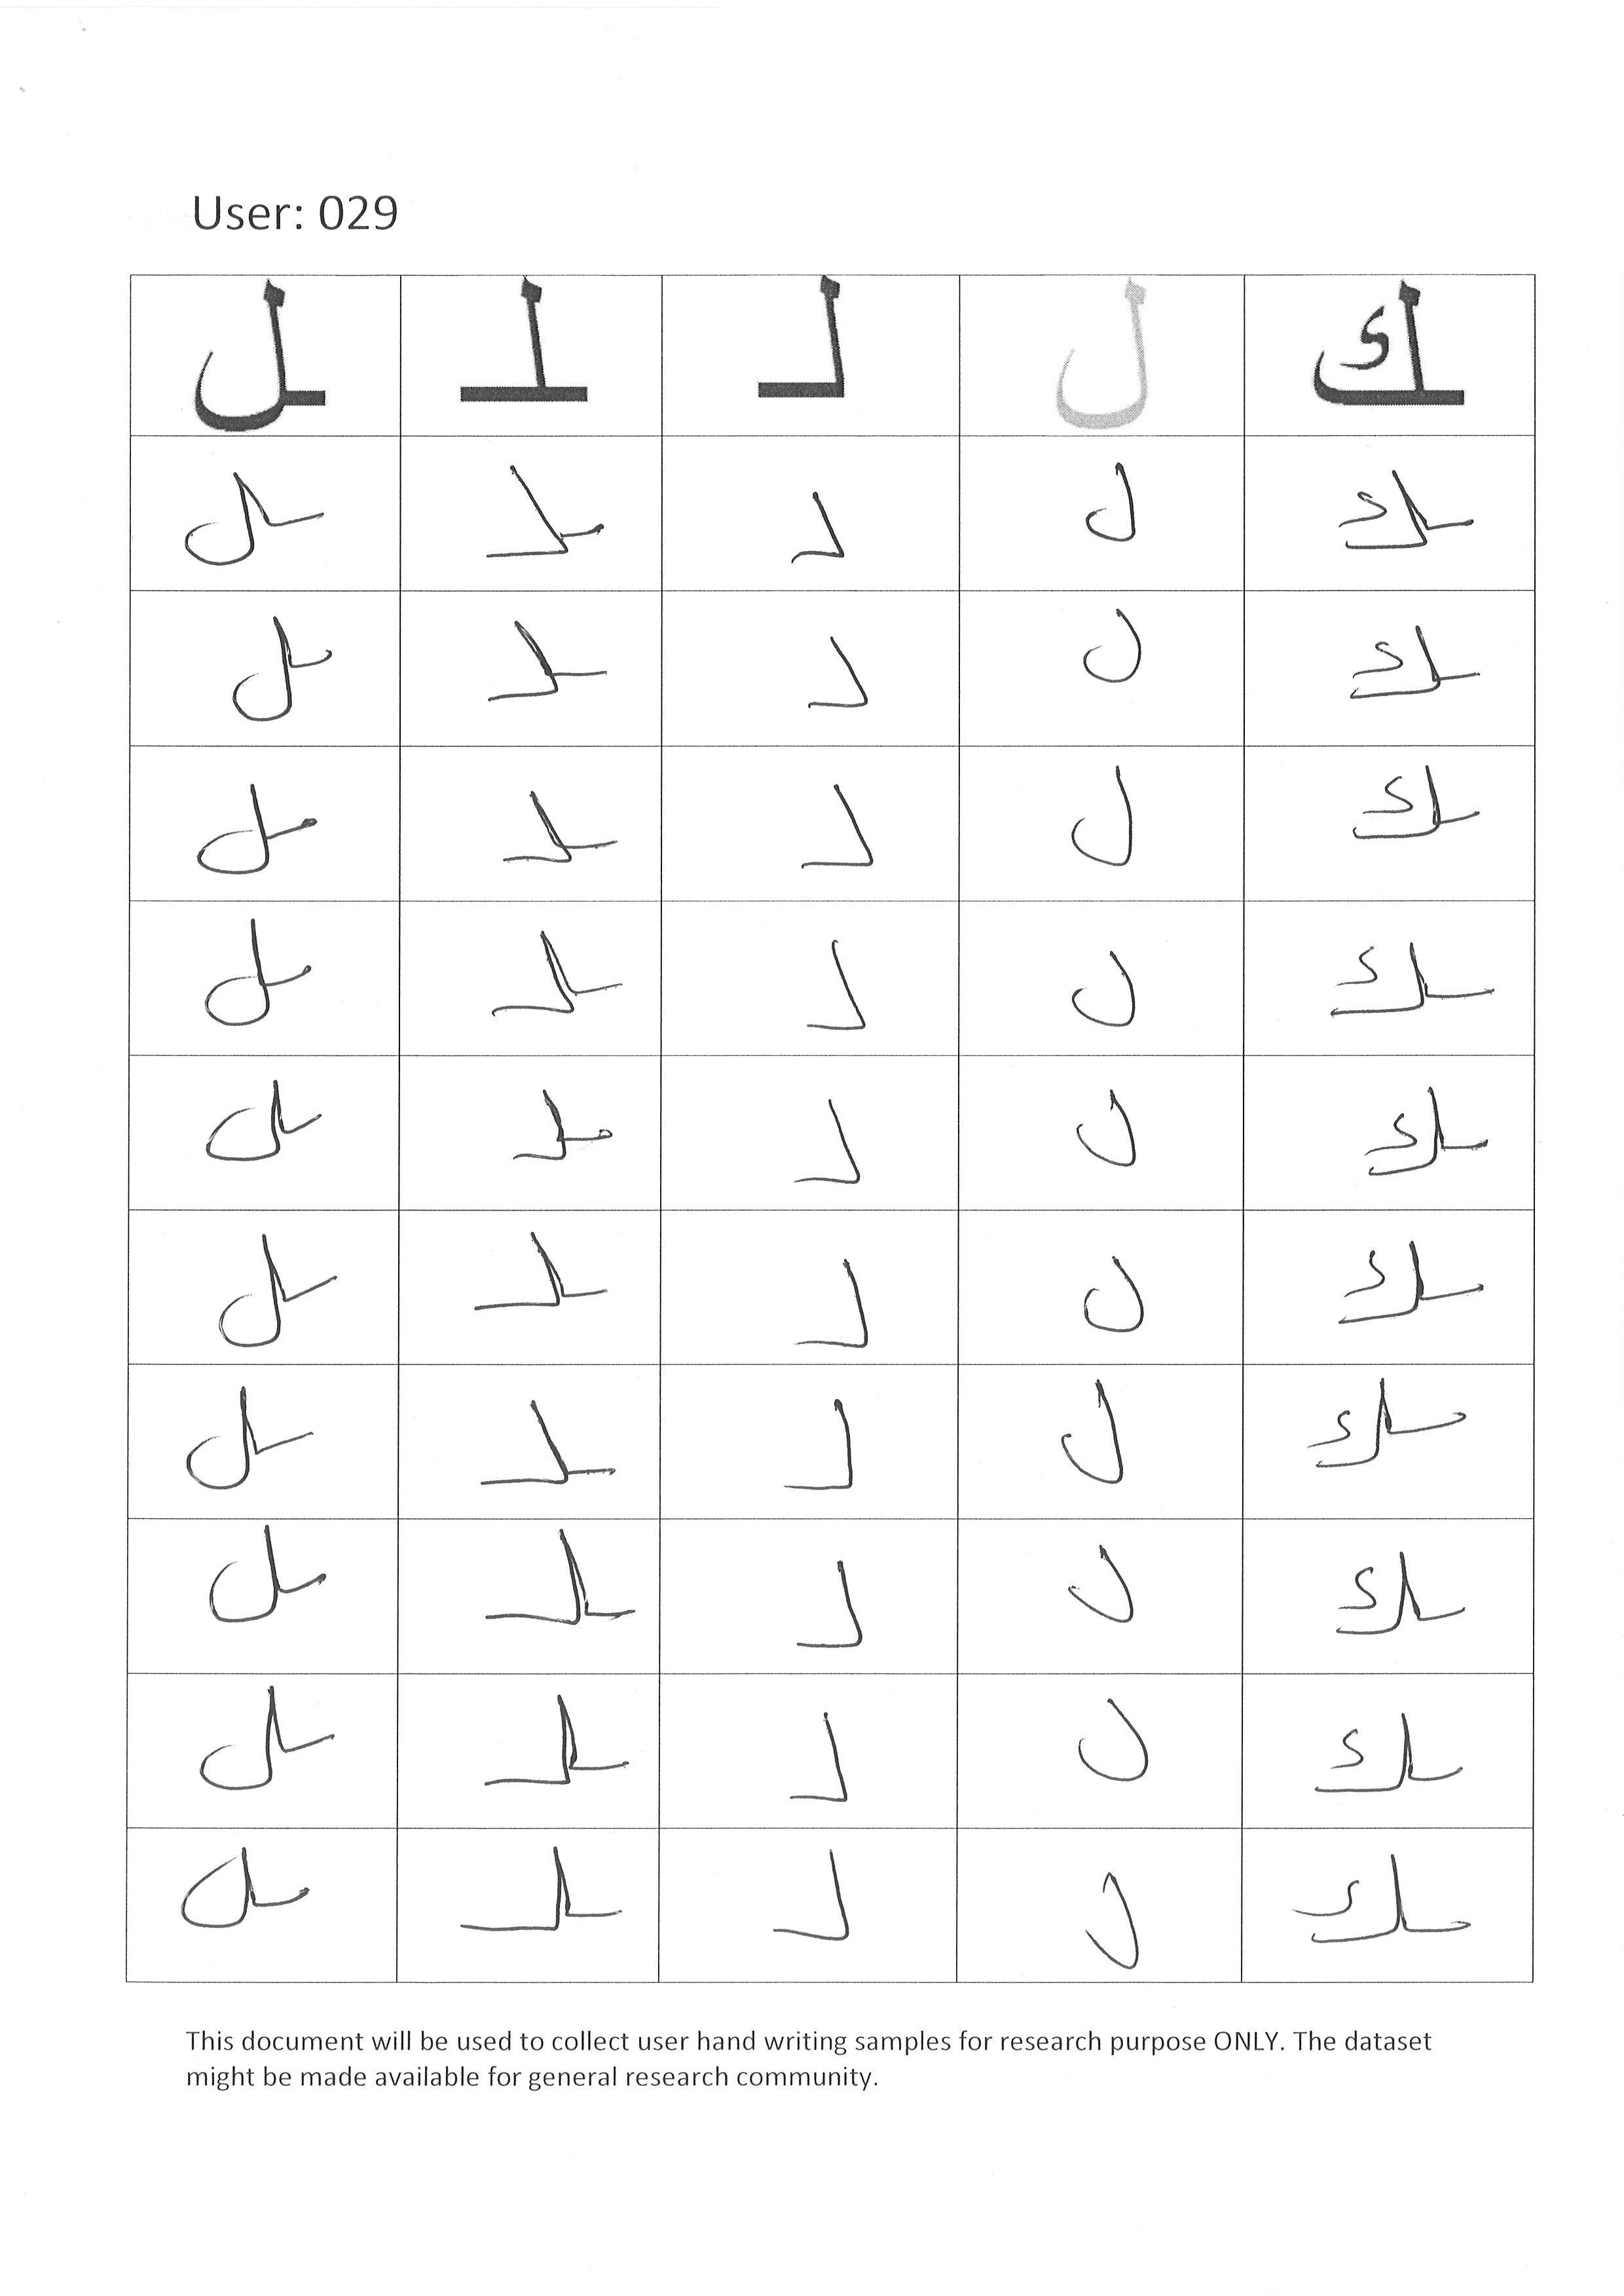 User: 029
ـل ـلـ لـ ل ـك
ـل ـلـ لـ ل ـك
ـل ـلـ لـ ل ـك
ـل ـلـ لـ ل ـك
ـل ـلـ لـ ل ـك
ـل ـلـ لـ ل ـك
ـل ـلـ لـ ل ـك
ـل ـلـ لـ ل ـك
ـل ـلـ لـ ل ـك
ـل ـلـ لـ ل ـك
ـل ـلـ لـ ل ـك
This document will be used to collect user hand writing samples for research purpose ONLY. The dataset
might be made available for general research community.